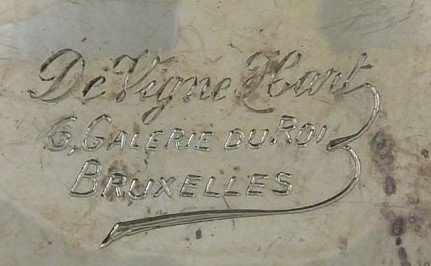 De Vigne Hart
6, GALERIE DU ROI
BRUXELLES